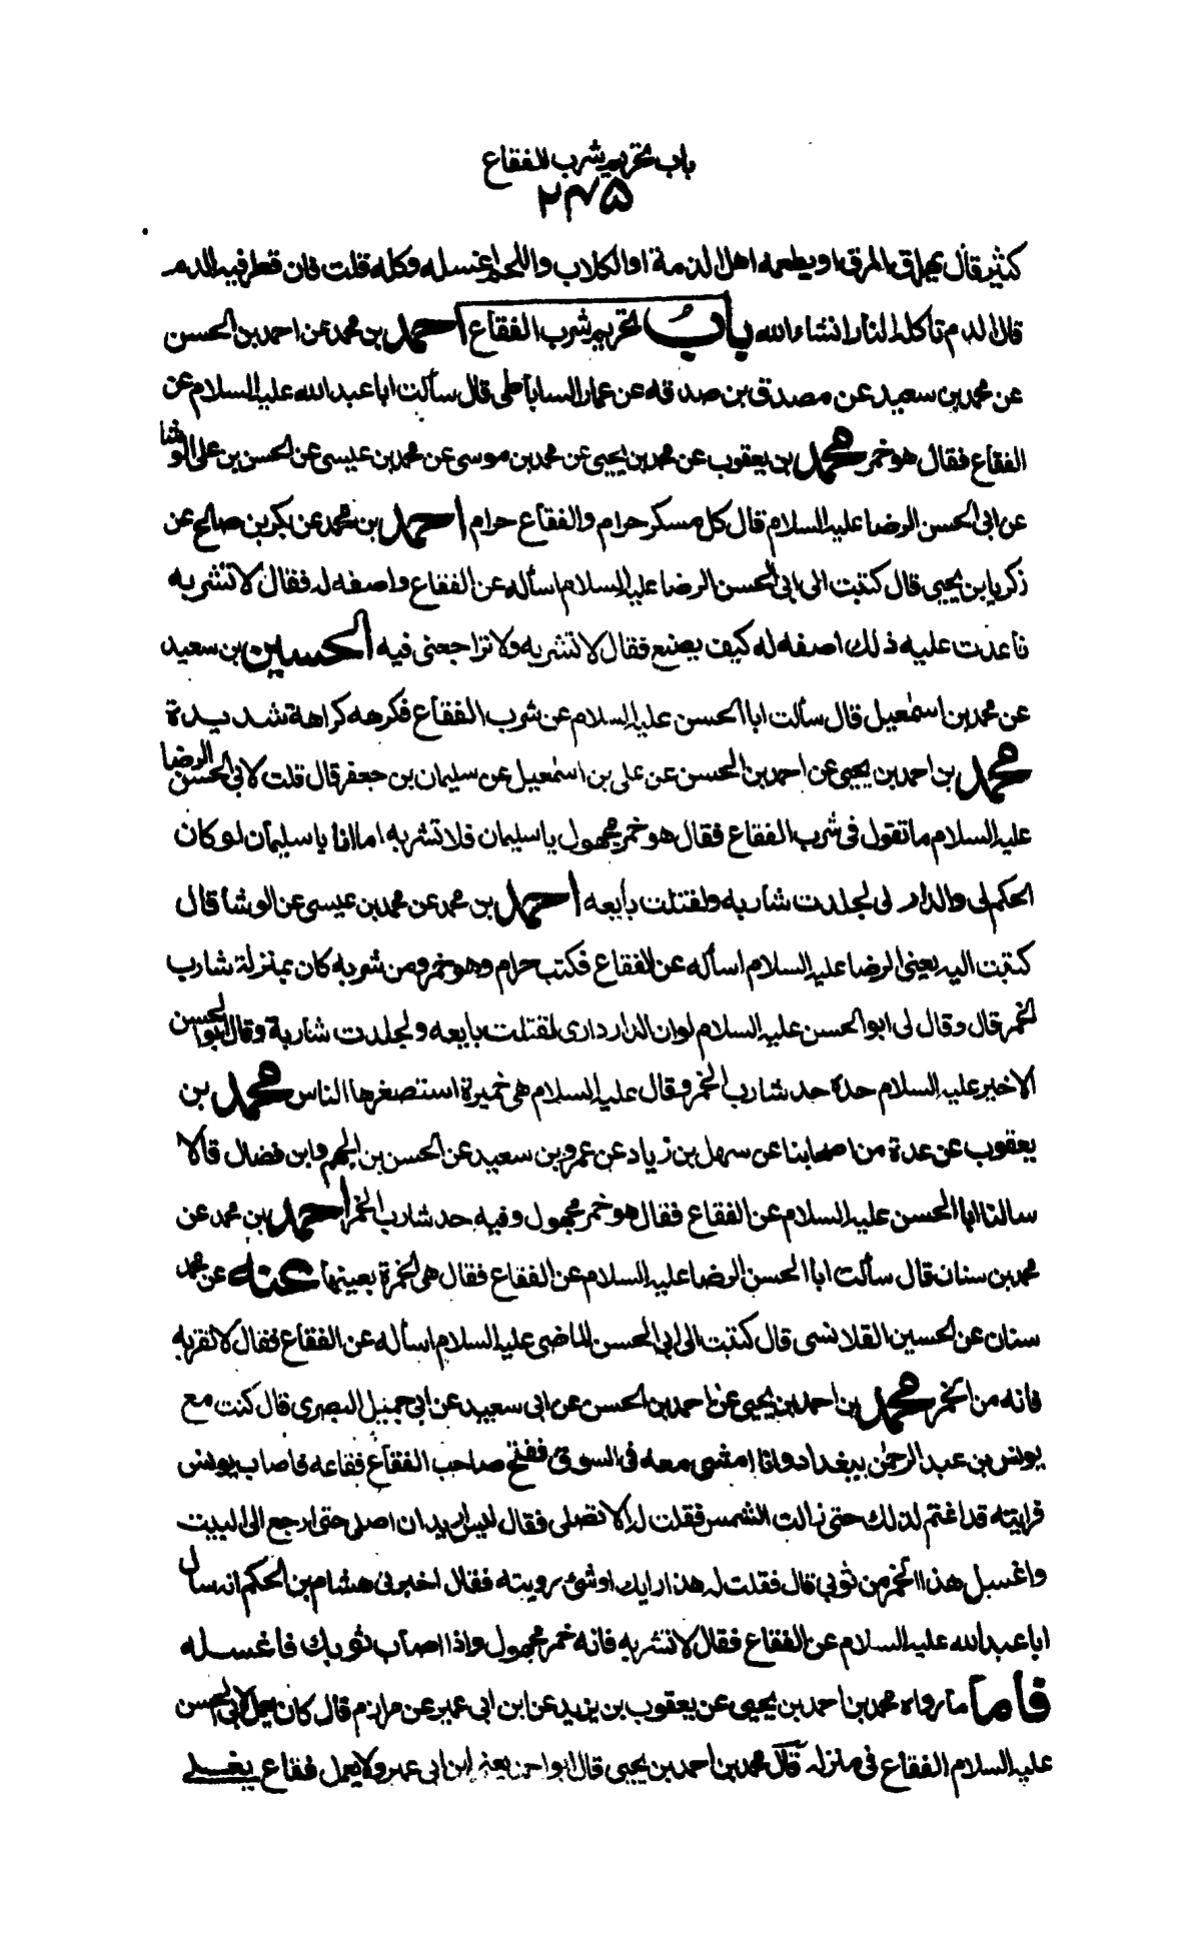 باب تحريم شرب الفقاع
٢٤٥
كثير قال يهراق المرق او يطعمه اهل الذمة او الكلاب واللحم اغسله وكله قلت فان قطر فيه الدم
قال الدم تاكله النار انشاء الله باب تحريم شرب الفقاع احمد بن محمد عن احمد بن الحسن
عن محمد بن سعيد عن مصدق بن صدقه عن عمار الساباطي قال سألت ابا عبد الله عليه السلام عن
الفقاع فقال هو خمر محمد بن يعقوب عن محمد بن يحيى عن محمد بن موسى عن محمد بن عيسى عن الحسن بن على الوشا
عن ابى الحسن الرضا عليه السلام قال كل مسكر حرام والفقاع حرام احمد بن محمد عن بكر بن صالح عن
زكريا بن يحيى قال كتبت الى ابى الحسن الرضا عليه السلام اسأله عن الفقاع واصفه له فقال لا تشربه
فاعدت عليه ذلك اصفه له كيف يصنع فقال لا تشربه ولا تراجعنى فيه الحسين بن سعيد
عن محمد بن اسمعيل قال سألت ابا الحسن عليه السلام عن شرب الفقاع فكرهه كراهة شديدة
محمد بن احمد بن يحيى عن احمد بن الحسن عن على بن اسمعيل عن سليمان بن جعفر قال قلت لابى الحسن الرضا
عليه السلام ما تقول فى شرب الفقاع فقال هو خمر مجهول يا سليمان فلا تشربه اما انا يا سليمان لو كان
الحكم لى والدار لى لجلدت شاربه ولقتلت بايعه احمد بن محمد عن محمد بن عيسى عن الوشا قال
كتبت اليه يعنى الرضا عليه السلام اسأله عن الفقاع فكتب حرام وهو خمر ومن شربه كان بمنزلة شارب
الخمر قال وقال لى ابو الحسن عليه السلام لو ان الدار دارى لقتلت بايعه ولجلدت شاربة وقال ابو الحسن
الاخير عليه السلام حده حد شارب الخمر وقال عليه السلام هى خميرة استصغرها الناس محمد بن
يعقوب عن عدة من اصحابنا عن سهل بن زياد عن عمرو بن سعيد عن الحسن بن الجهم وابن فضال قالا
سالنا ابا الحسن عليه السلام عن الفقاع فقال هو خمر مجهول وفيه حد شارب الخمر احمد بن محمد عن
محمد بن سنان قال سألت ابا الحسن الرضا عليه السلام عن الفقاع فقال هى الخمرة بعينها عنه عن محمد
سنان عن الحسين القلانسى قال كتبت الى ابى الحسن الماضى عليه السلام اسأله عن الفقاع فقال لا تقربه
فانه من الخمر محمد بن احمد بن يحيى عن احمد بن الحسن عن ابى سعيد عن ابى جميل البصرى قال كنت مع
يونس بن عبد الرحمن ببغداد وانا امشى معه فى السوق ففتح صاحب الفقاع فقاعه فاصاب يونس
فرايته قد اغتم لذلك حتى زالت الشمس فقلت له الا تصلى فقال ليس اريد ان اصلى حتى ارجع الى البيت
واغسل هذا الخمر من ثوبى قال فقلت له هذا رايك او شئ ترويته فقال اخبرنى هشام بن الحكم انه سال
ابا عبد الله عليه السلام عن الفقاع فقال لا تشربه فانه خمر مجهول واذا اصاب ثوبك فاغسله
فاما ما رواه محمد بن احمد بن يحيى عن يعقوب بن يزيد عن ابن ابى عمير عن مرازم قال كان يعمل لابى الحسن
عليه السلام الفقاع فى منزله قال محمد بن احمد بن يحيى قال ابو احمد يعنى ابن ابى عمير ولا يعمل فقاع يغلى